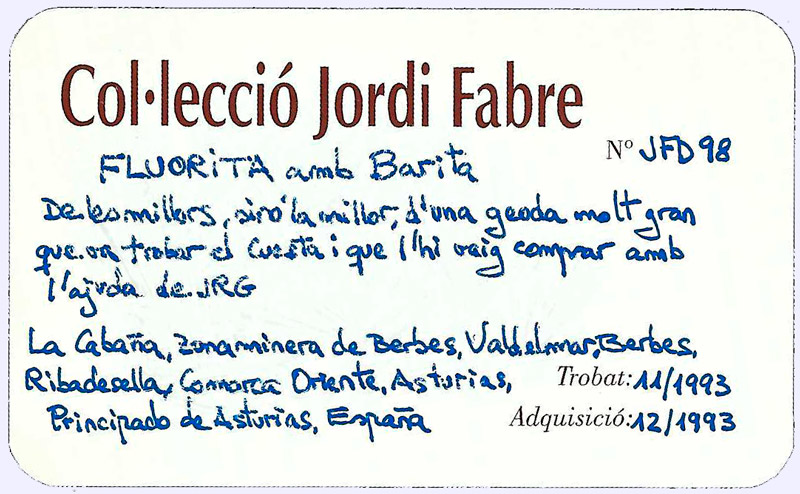 Col·lecció Jordi Fabre
Nº JFD98
FLUORITA amb Barita
De les millors, sinó la millor, d'una geoda molt gran
que va trobar el Cuesta i que l'hi vaig comprar amb
l'ajuda de JRG
La Cabaña, zona minera de Berbes, Valdelmar, Berbes,
Ribadesella, Comarca Oriente, Asturias,
Trobat: 11/1993
Principado de Asturias, España
Adquisició: 12/1993